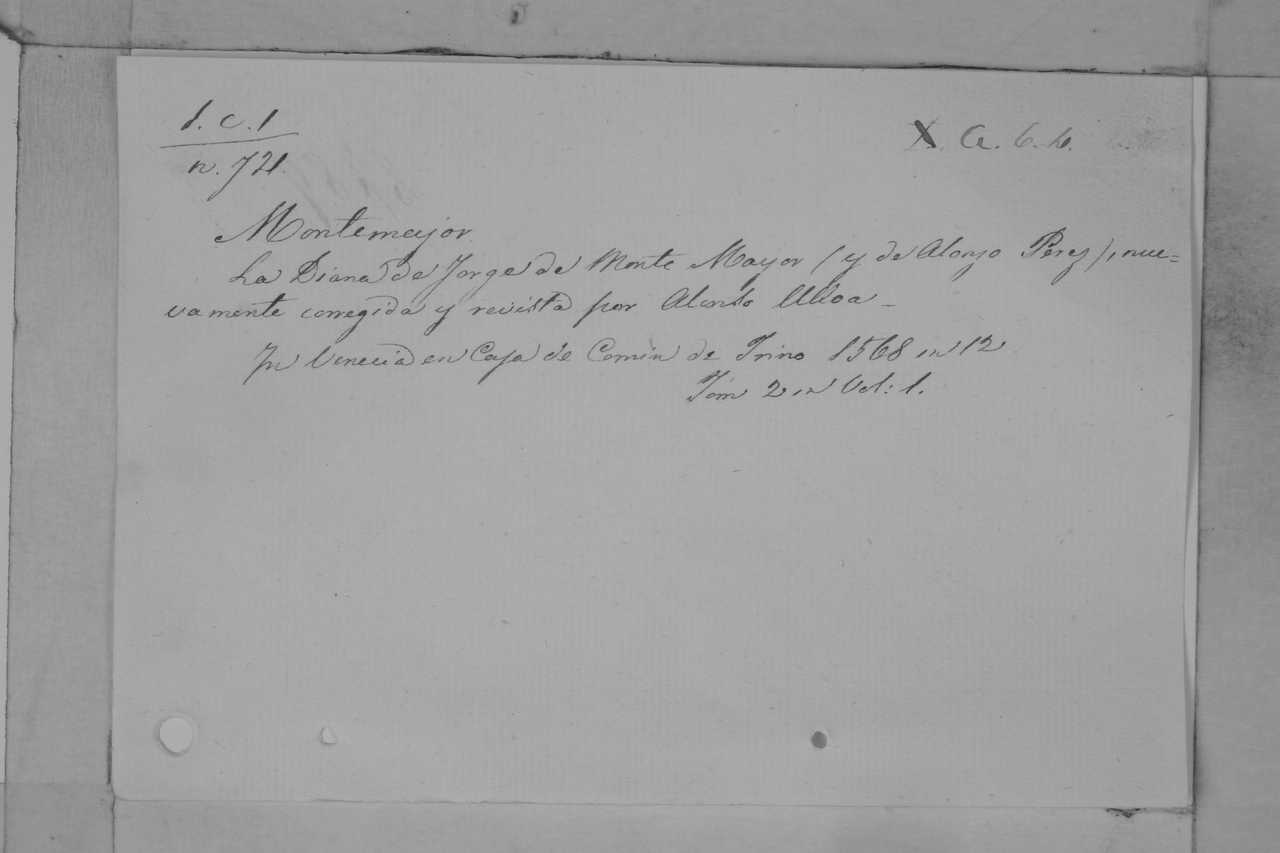 1. c. 1
n. 721.
X. a. 6. 4.
Montemajor
La Diana de Jorge de Monte Mayor (y de Alonzo Perez), nue=
vamente corregida y revista por Alonso Ulloa -
In Venecia en Casa de Comin de Trino 1568 in 12
Tom 2 in Vol: 1.